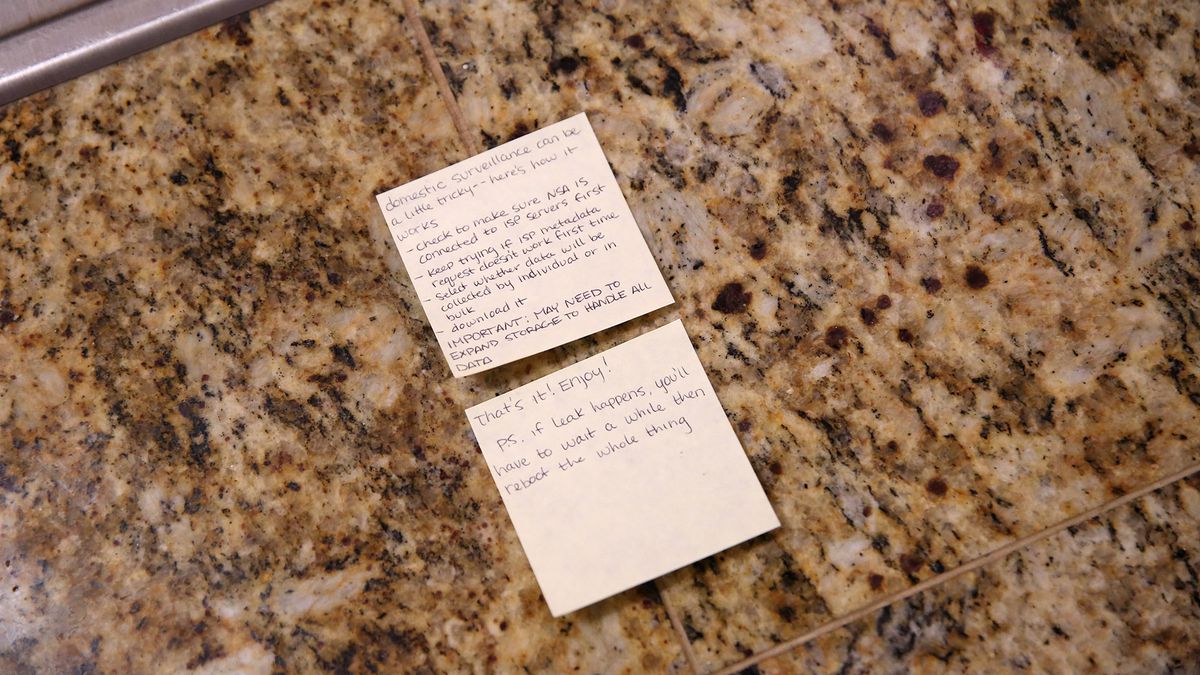 domestic surveillance can be
a little tricky--here's how it
works
- check to make sure NSA is
connected to ISP servers first
- keep trying if ISP metadata
request doesn't work first time
- select whether data will be
collected by individual or in
bulk
- download it
IMPORTANT: MAY NEED TO
EXPAND STORAGE TO HANDLE ALL
DATA
That's it! Enjoy!
PS. if leak happens, you'll
have to wait a while then
reboot the whole thing